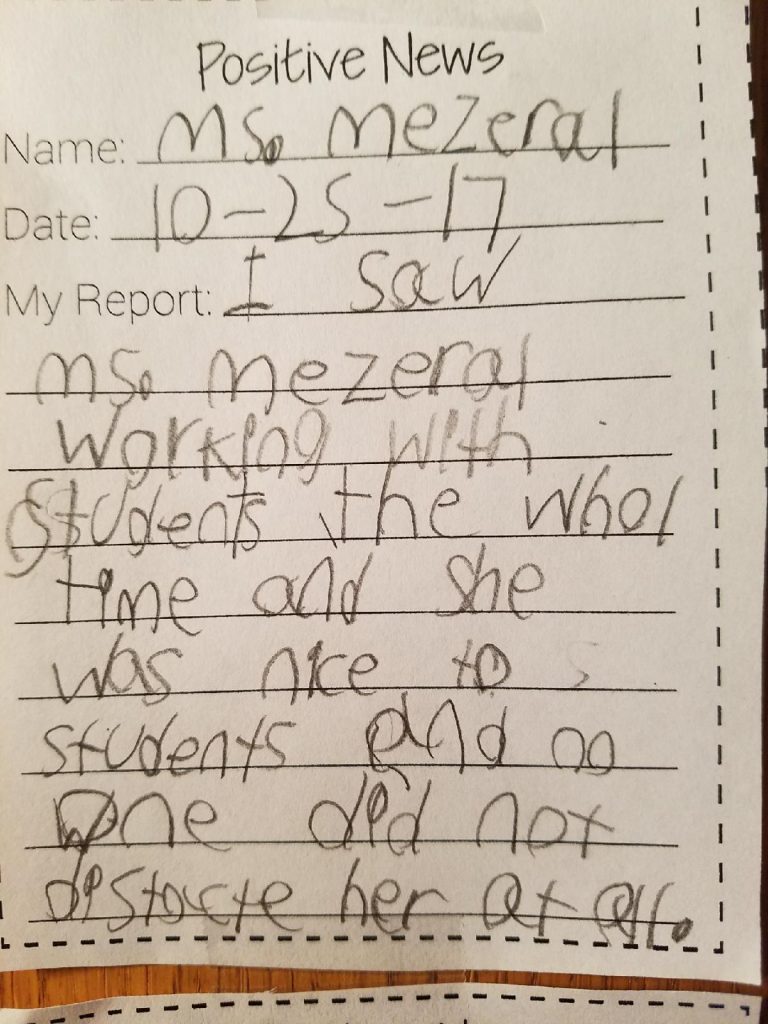 Positive News
Name: Ms. Mezeral
Date: 10-25-17
My Report: I saw
Ms. Mezeral
working with
students the whol
time and she
was nice to
students and no
one did not
distacte her at all.